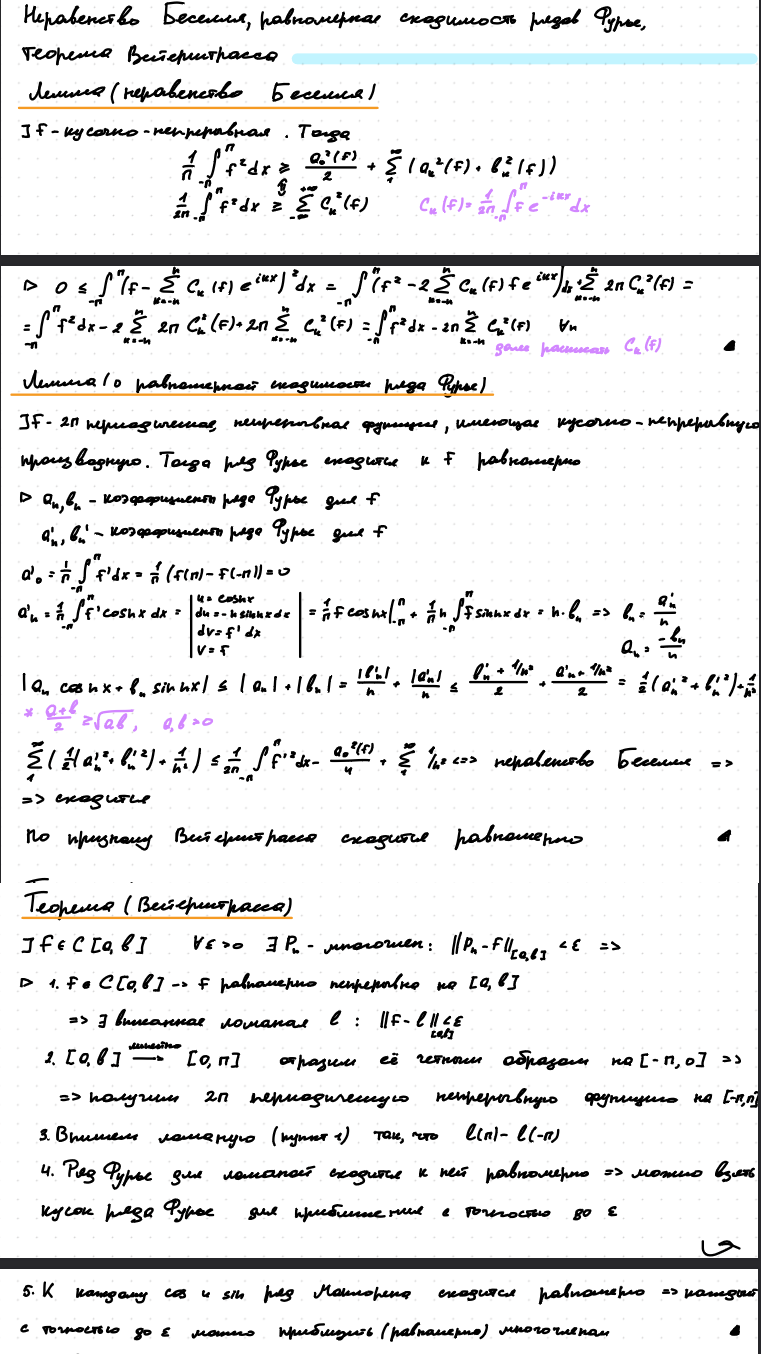 Неравенство Бесселя, равномерная сходимость рядов Фурье,
Теорема Вейерштрасса
Лемма (неравенство Бесселя)
∃ f - кусочно-непрерывная. Тогда
1/π ∫_{-π}^{π} f² dx ≥ a₀²(f)/2 + Σ_1^∞ (aₖ²(f) + bₖ²(f))
1/2π ∫_{-π}^{π} f² dx ≥ Σ_{-∞}^{+∞} Cₖ²(f) Cₖ(f) = 1/2π ∫_{-π}^{π} f e^{-ikx} dx
▷ 0 ≤ ∫_{-π}^{π} (f - Σ_{k=-n}^{n} Cₖ(f) e^{ikx})² dx = ∫_{-π}^{π} (f² - 2 Σ_{k=-n}^{n} Cₖ(f) f e^{ikx}) dx + Σ_{k=-n}^{n} 2π Cₖ²(f) =
= ∫_{-π}^{π} f² dx - 2 Σ_{k=-n}^{n} 2π Cₖ²(f) + 2π Σ_{k=-n}^{n} Cₖ²(f) = ∫_{-π}^{π} f² dx - 2π Σ_{k=-n}^{n} Cₖ²(f) ∀n
далее расписать Cₖ(f)
Лемма (о равномерной сходимости ряда Фурье)
∃ f - 2π периодическая, непрерывная функция, имеющая кусочно-непрерывную
производную. Тогда ряд Фурье сходится к f равномерно
▷ aₙ, bₙ - коэффициенты ряда Фурье для f
a'ₙ, b'ₙ - коэффициенты ряда Фурье для f
a'₀ = 1/π ∫_{-π}^{π} f' dx = 1/π (f(π) - f(-π)) = 0
a'ₙ = 1/π ∫_{-π}^{π} f' cos nx dx = | u = cos nx
du = -n sin nx dx
dv = f' dx
v = f | = 1/π f cos nx |_{-π}^{π} + 1/π n ∫_{-π}^{π} f sin nx dx = n · bₙ => bₙ = a'ₙ/n
aₙ = -bₙ/n
|aₙ cos nx + bₙ sin nx| ≤ |aₙ| + |bₙ| = |b'ₙ|/n + |a'ₙ|/n ≤ (b'ₙ + 1/n²)/2 + (a'ₙ + 1/n²)/2 = 1/2 (a'ₙ² + b'ₙ²) + 1/n²
* (a+b)/2 ≥ √ab, a,b > 0
Σ_1^∞ (1/2 (a'ₙ² + b'ₙ²) + 1/n²) ≤ 1/2π ∫_{-π}^{π} f'² dx - a₀²(f)/4 + Σ_1^∞ 1/n² <=> неравенство Бесселя =>
=> сходится
По признаку Вейерштрасса сходится равномерно
Теорема (Вейерштрасса)
∃ f ∈ C[a, b] ∀ε > 0 ∃ Pₙ - многочлен: ||Pₙ - f||_{[a,b]} < ε =>
▷ 1. f ∈ C[a, b] -> f равномерно непрерывна на [a, b]
=> ∃ вписанная ломаная l : ||f - l||_{[a,b]} < ε
2. [a, b] линейно → [0, π] отразим её четным образом на [-π, 0] =>
=> получим 2π периодическую непрерывную функцию на [-π, π]
3. Впишем ломаную (пункт 1) так, что l(π) - l(-π)
4. Ряд Фурье для ломаной сходится к ней равномерно => можно взять
кусок ряда Фурье для приближения с точностью до ε
5. К каждому cos и sin ряд Маклорена сходится равномерно => каждый
с точностью до ε можно приблизить (равномерно) многочленам